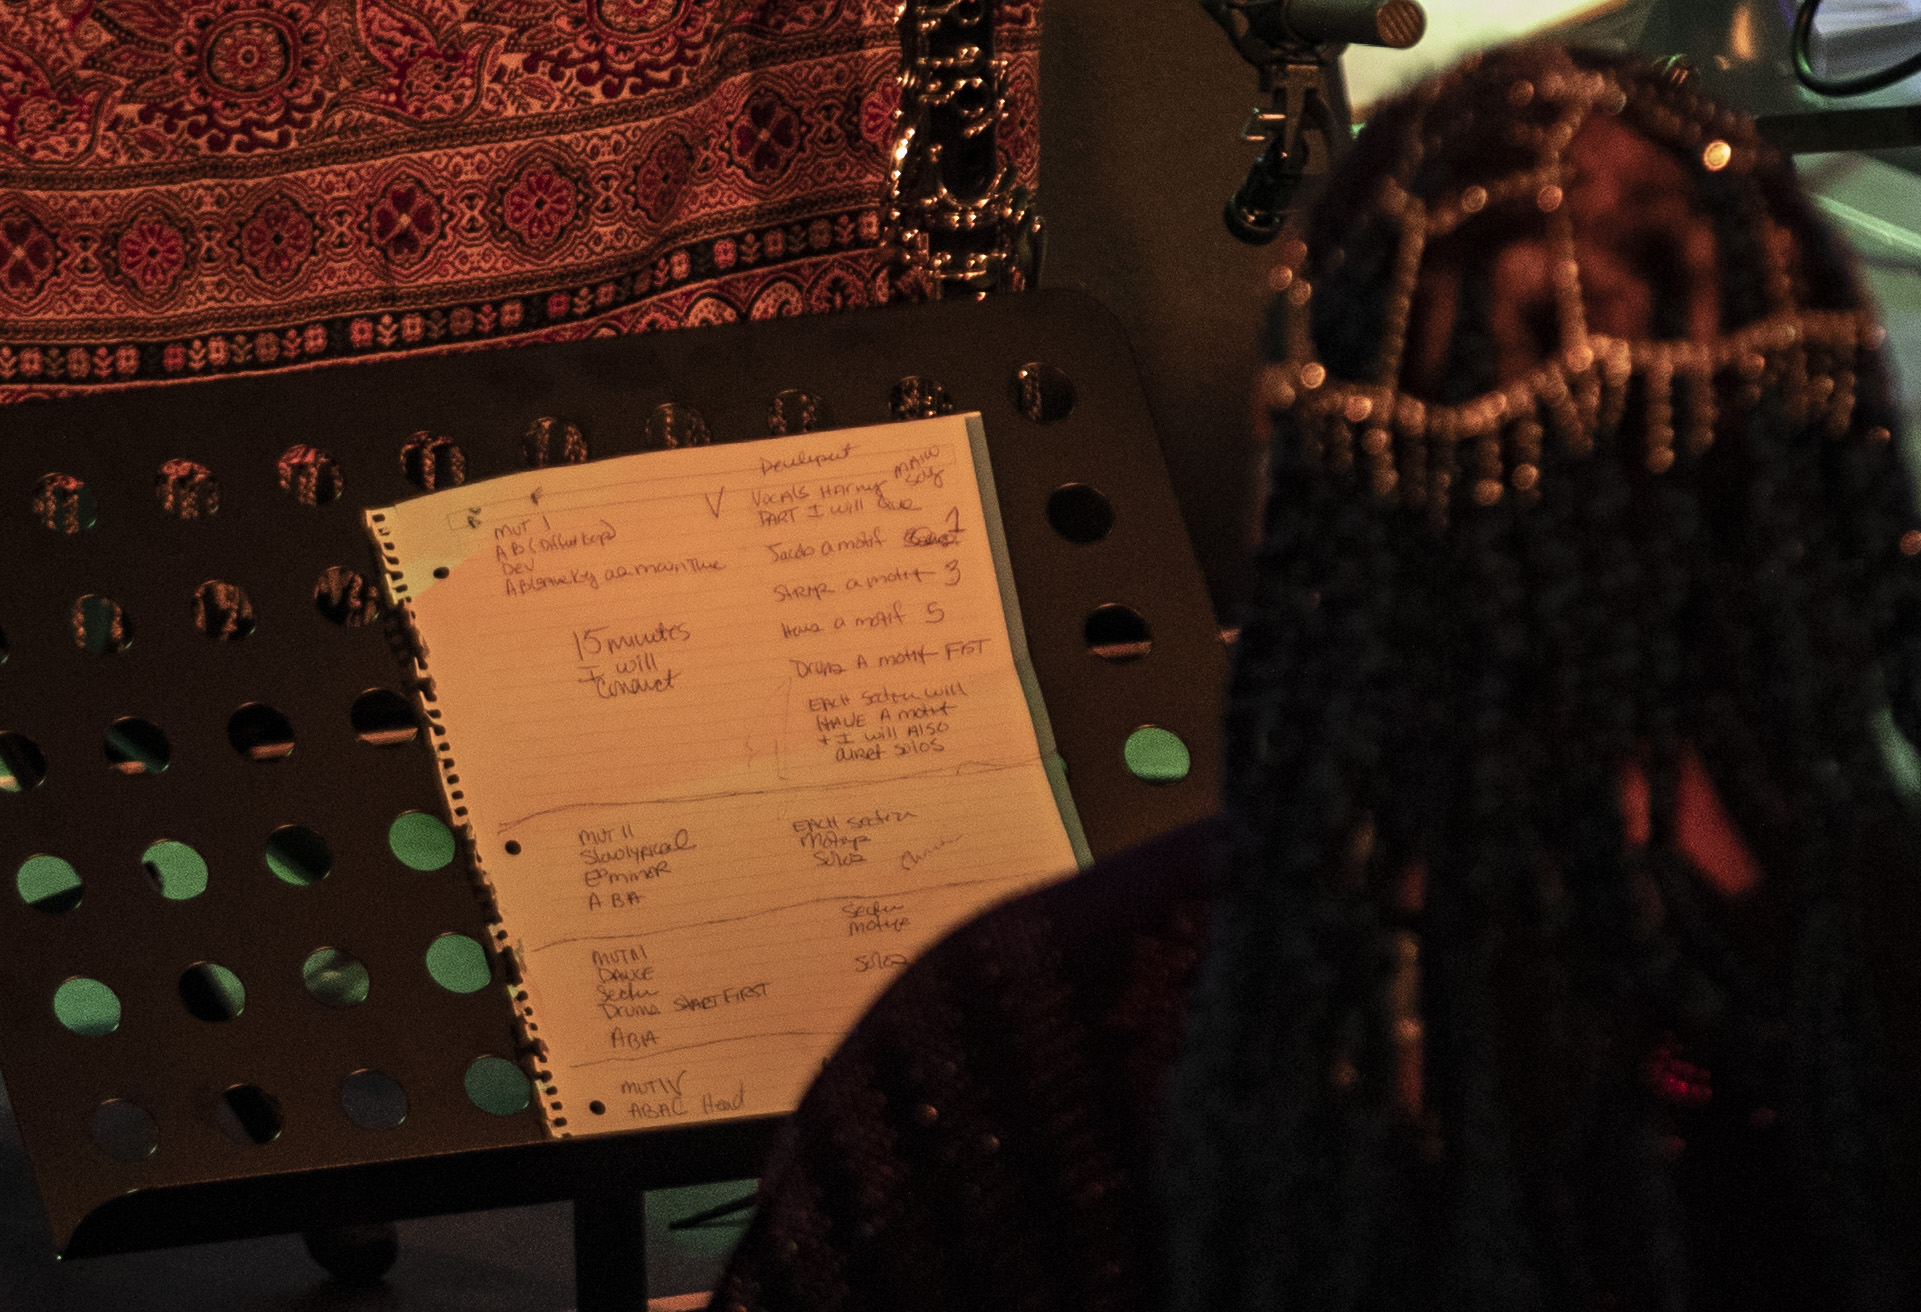 MUT I
AB (Diffrent keys)
DEV
AB (same key as main Tune
15 minutes
I will
Conduct
V
Development
MAIN
Vocals Harmony
PART I will Que
Jacob a motif 1
Strings a motif 3
Have a motif 5
Drums A motif FIRST
EACH section will
HAVE A motif
+ I will Also
direct solos
MUT II
Slow lyrical
Eb minor
ABA
EACH section
Motifs
Solos
MUT III
DANCE
Section
Drums START FIRST
ABA
Section
Motif
Solos
MUT IV
ABAC Head